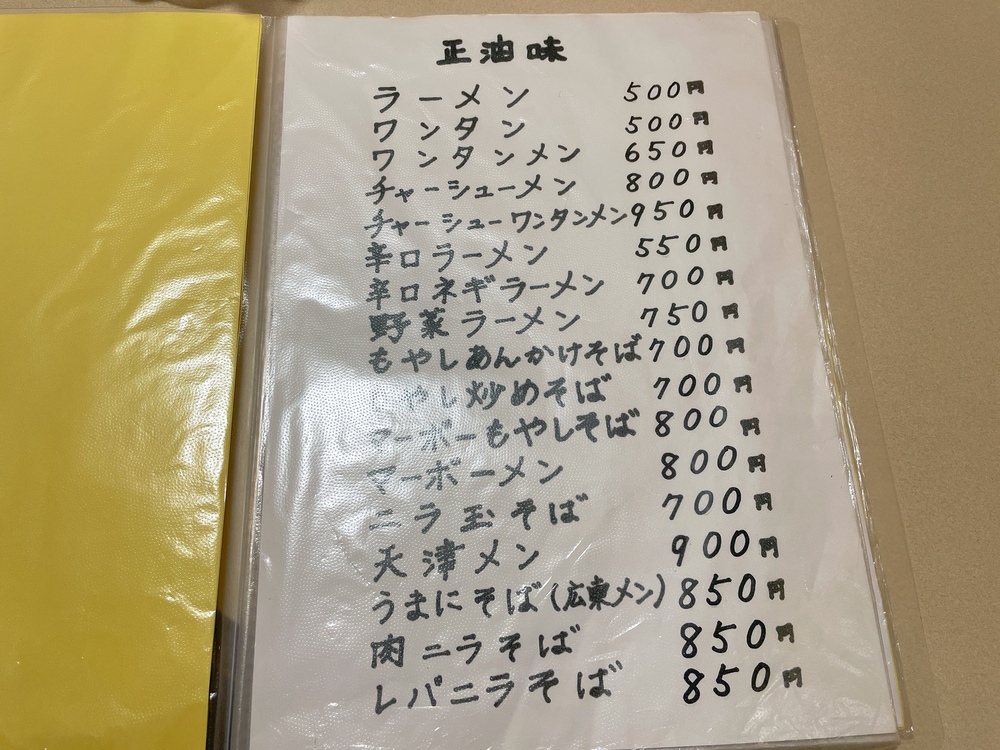 正油味
ラーメン 500円
ワンタン 500円
ワンタンメン 650円
チャーシューメン 800円
チャーシューワンタンメン 950円
辛口ラーメン 550円
辛口ネギラーメン 700円
野菜ラーメン 750円
もやしあんかけそば 700円
もやし炒めそば 700円
マーボーもやしそば 800円
マーボーメン 800円
ニラ玉そば 700円
天津メン 900円
うまにそば(広東メン) 850円
肉ニラそば 850円
レバニラそば 850円